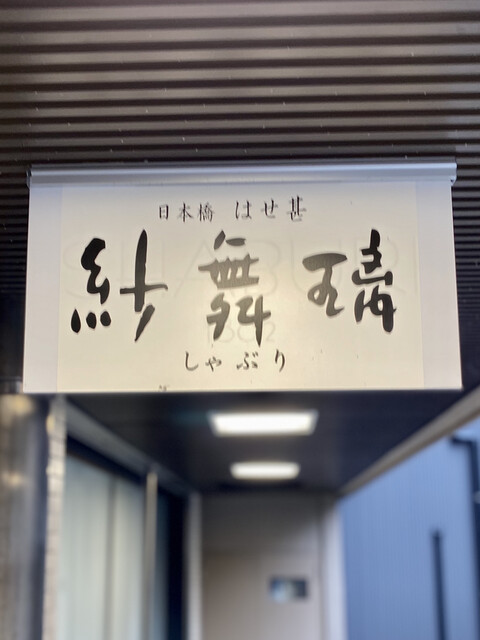 日本橋 はせ甚
紗舞璃
しゃぶり